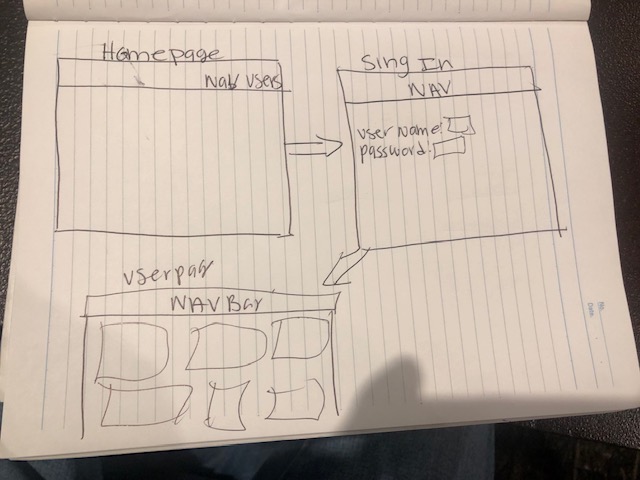 Homepage
Nav users
Sing In
NAV
username:
password:
userpag
NAV Bar
No.
Date.